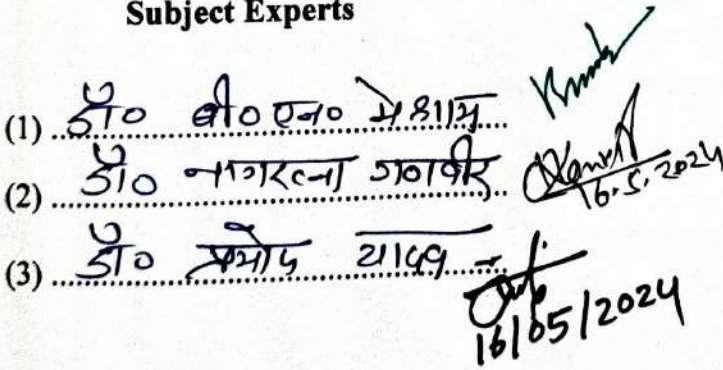 Subject Experts
(1) डॉ० बी० एन० मेश्राम
(2) डॉ० नागरत्ना गणवीर
16.5.2024
(3) डॉ० प्रमोद यादव
16/05/2024